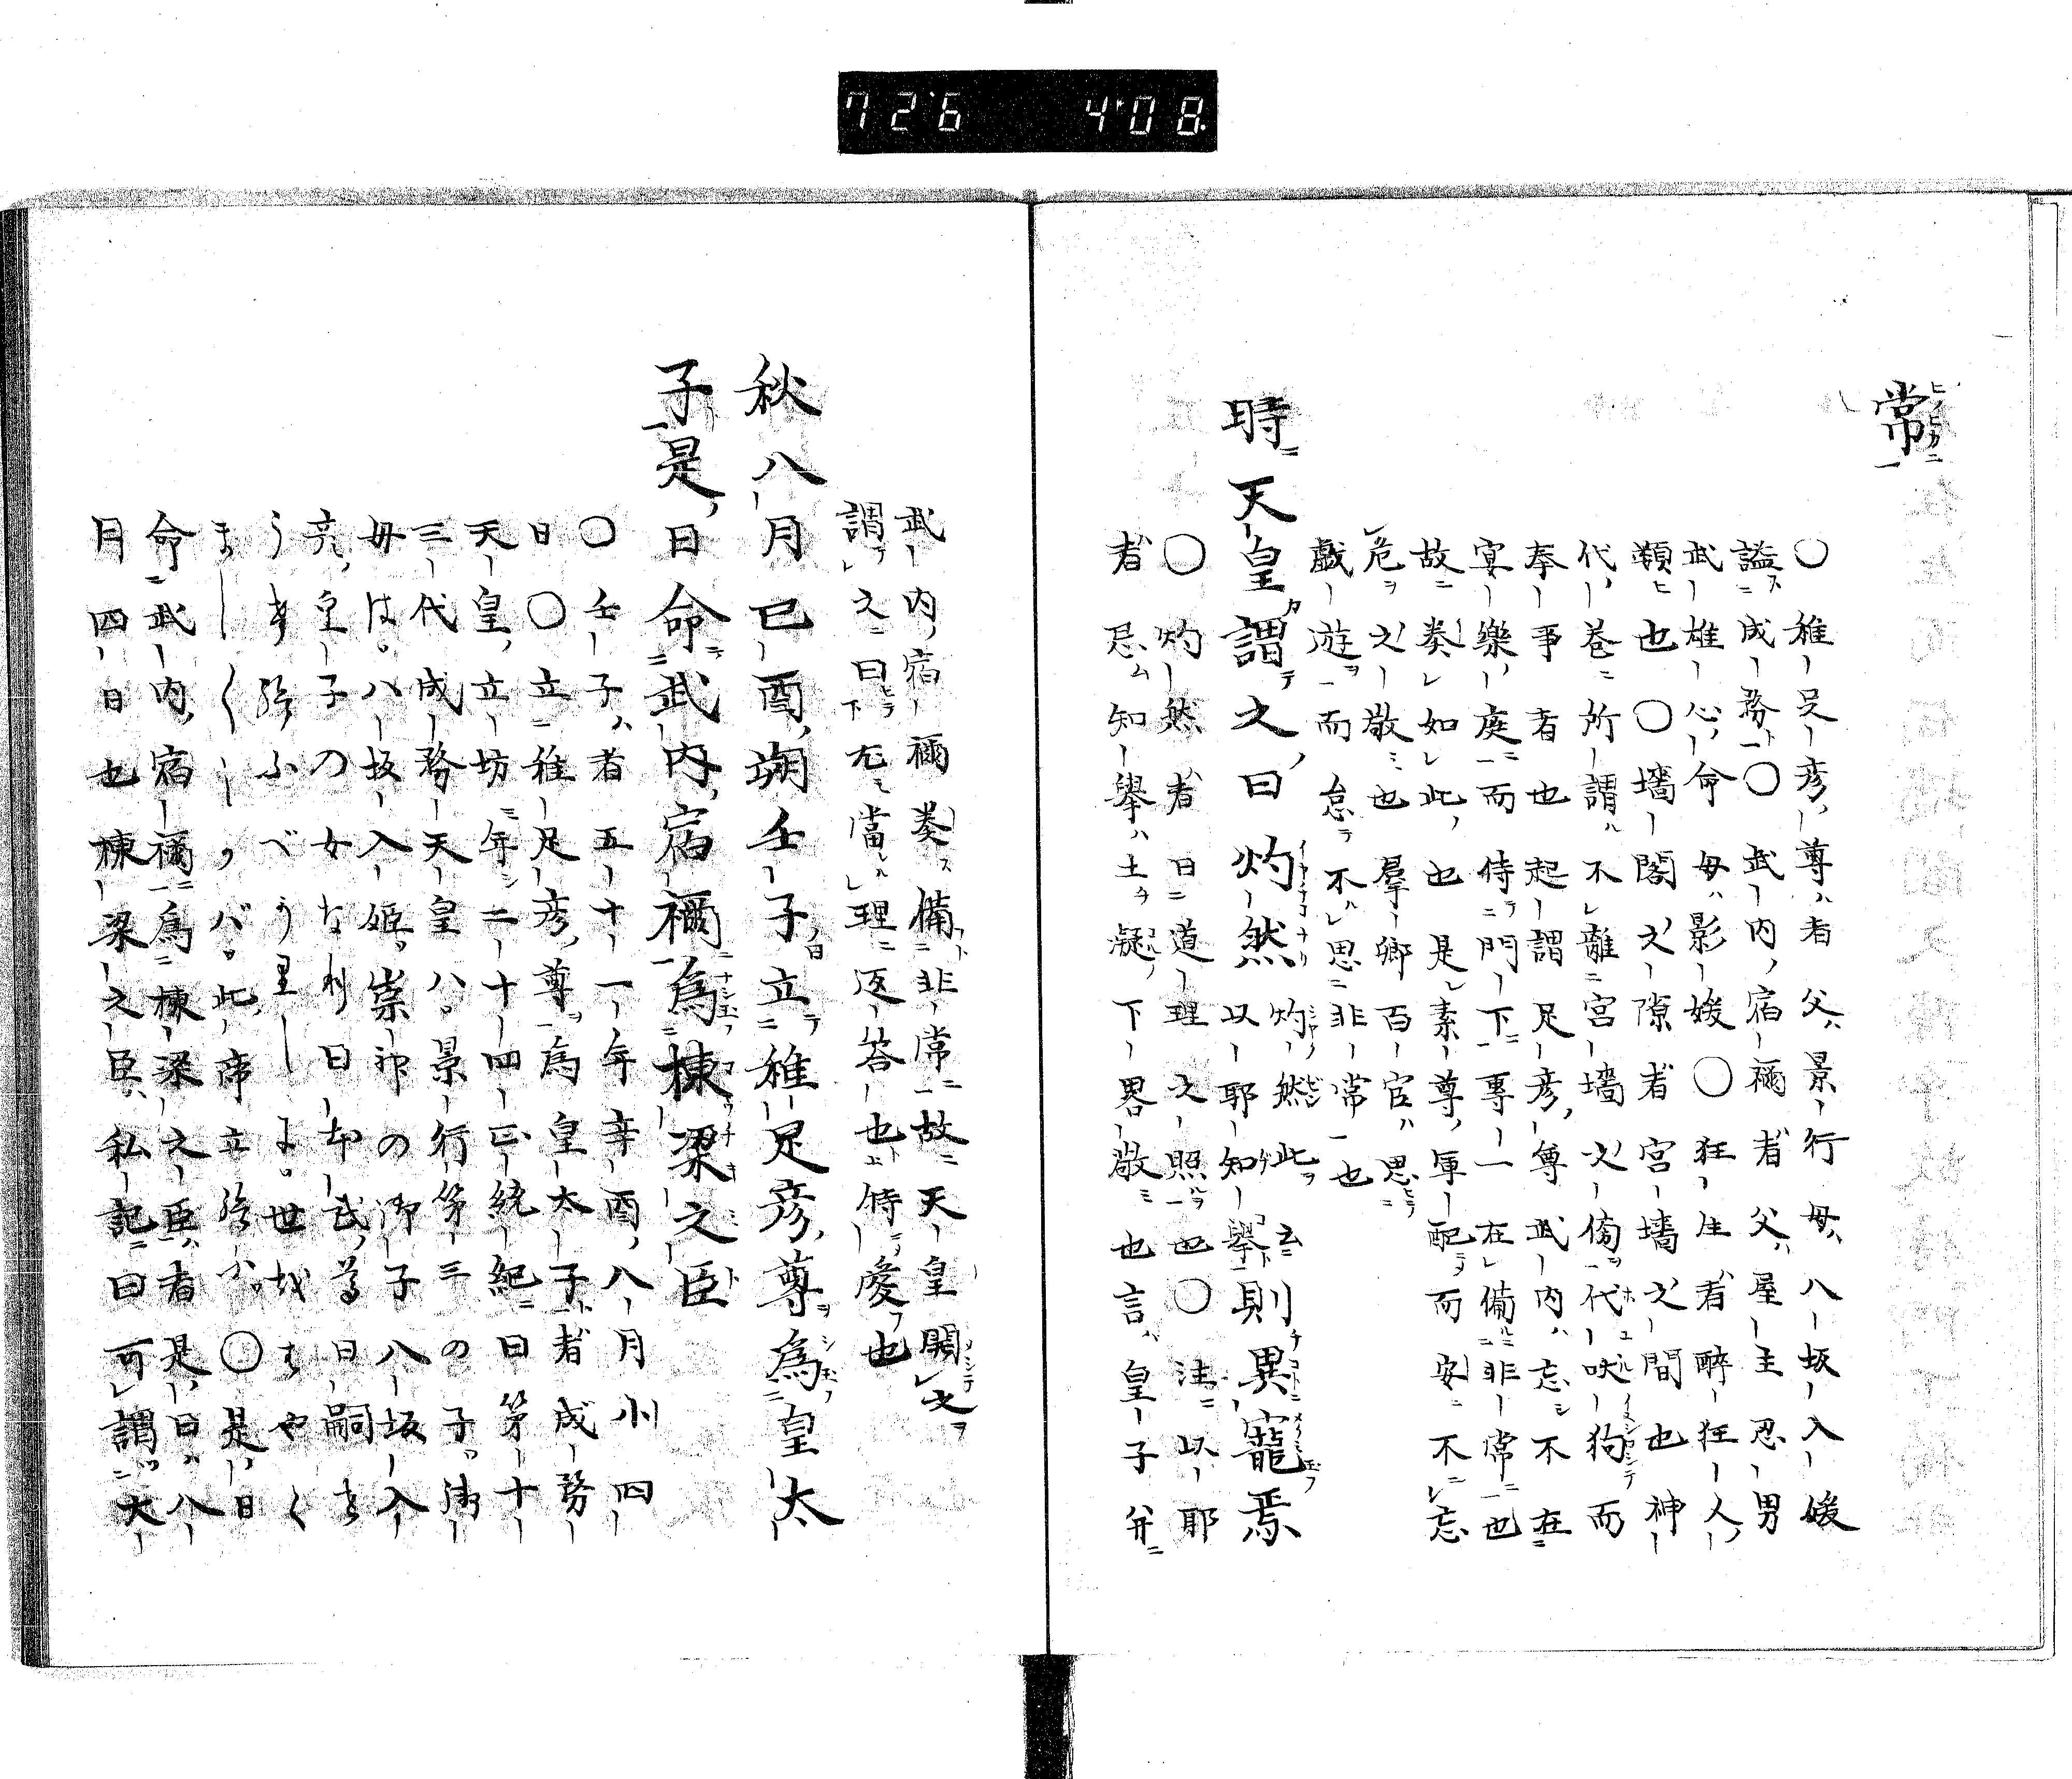 726 408.
常
〇稚足彦尊者父景行母八坂入媛
謚成務〇武内宿禰者父屋主忍男
武雄心命母影媛〇狂生者醉狂人
類也〇墻閣之隙者宮墻之間也神
代巻所謂不離宮墻之傍代吠狗而
奉事者也起謂足彦尊武内忘不在
宴樂庭而侍門下專一在備非常也
故奏如此也是素尊軍配而安不忘
危之敬也羣卿百宦思
戲遊而怠不思非常也
時天皇謂之曰灼然灼然此云以耶知擧則異寵焉
〇灼然者日道理之照也〇法以耶
者忌知擧土凝下界敬也言皇子并
武内宿禰奏備非常故天皇聞之
謂之曰尤當理返答也侍處也
秋八月已酉朔壬子立稚足彦尊為皇太
子是日命武内宿禰為棟梁之臣
〇壬子者五十一年辛酉八月小四
日〇立稚足彦尊為皇太子者成務
天皇立坊年二十四正統紀曰第十
三代成務天皇八景行第三の子御
母は八坂入姫崇神の御子八坂入
彦皇子の女なり日本武尊日嗣を
うけ給ふべうりしに世をはやく
ましくしヽバ此帝立給ふ〇是日
命武内宿禰為棟梁之臣者是日八
月四日也棟梁之臣私記曰可謂大